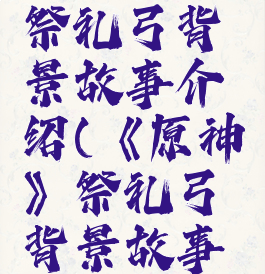 祭礼弓背
景故事介
绍(《原神
》祭礼弓
背景故事